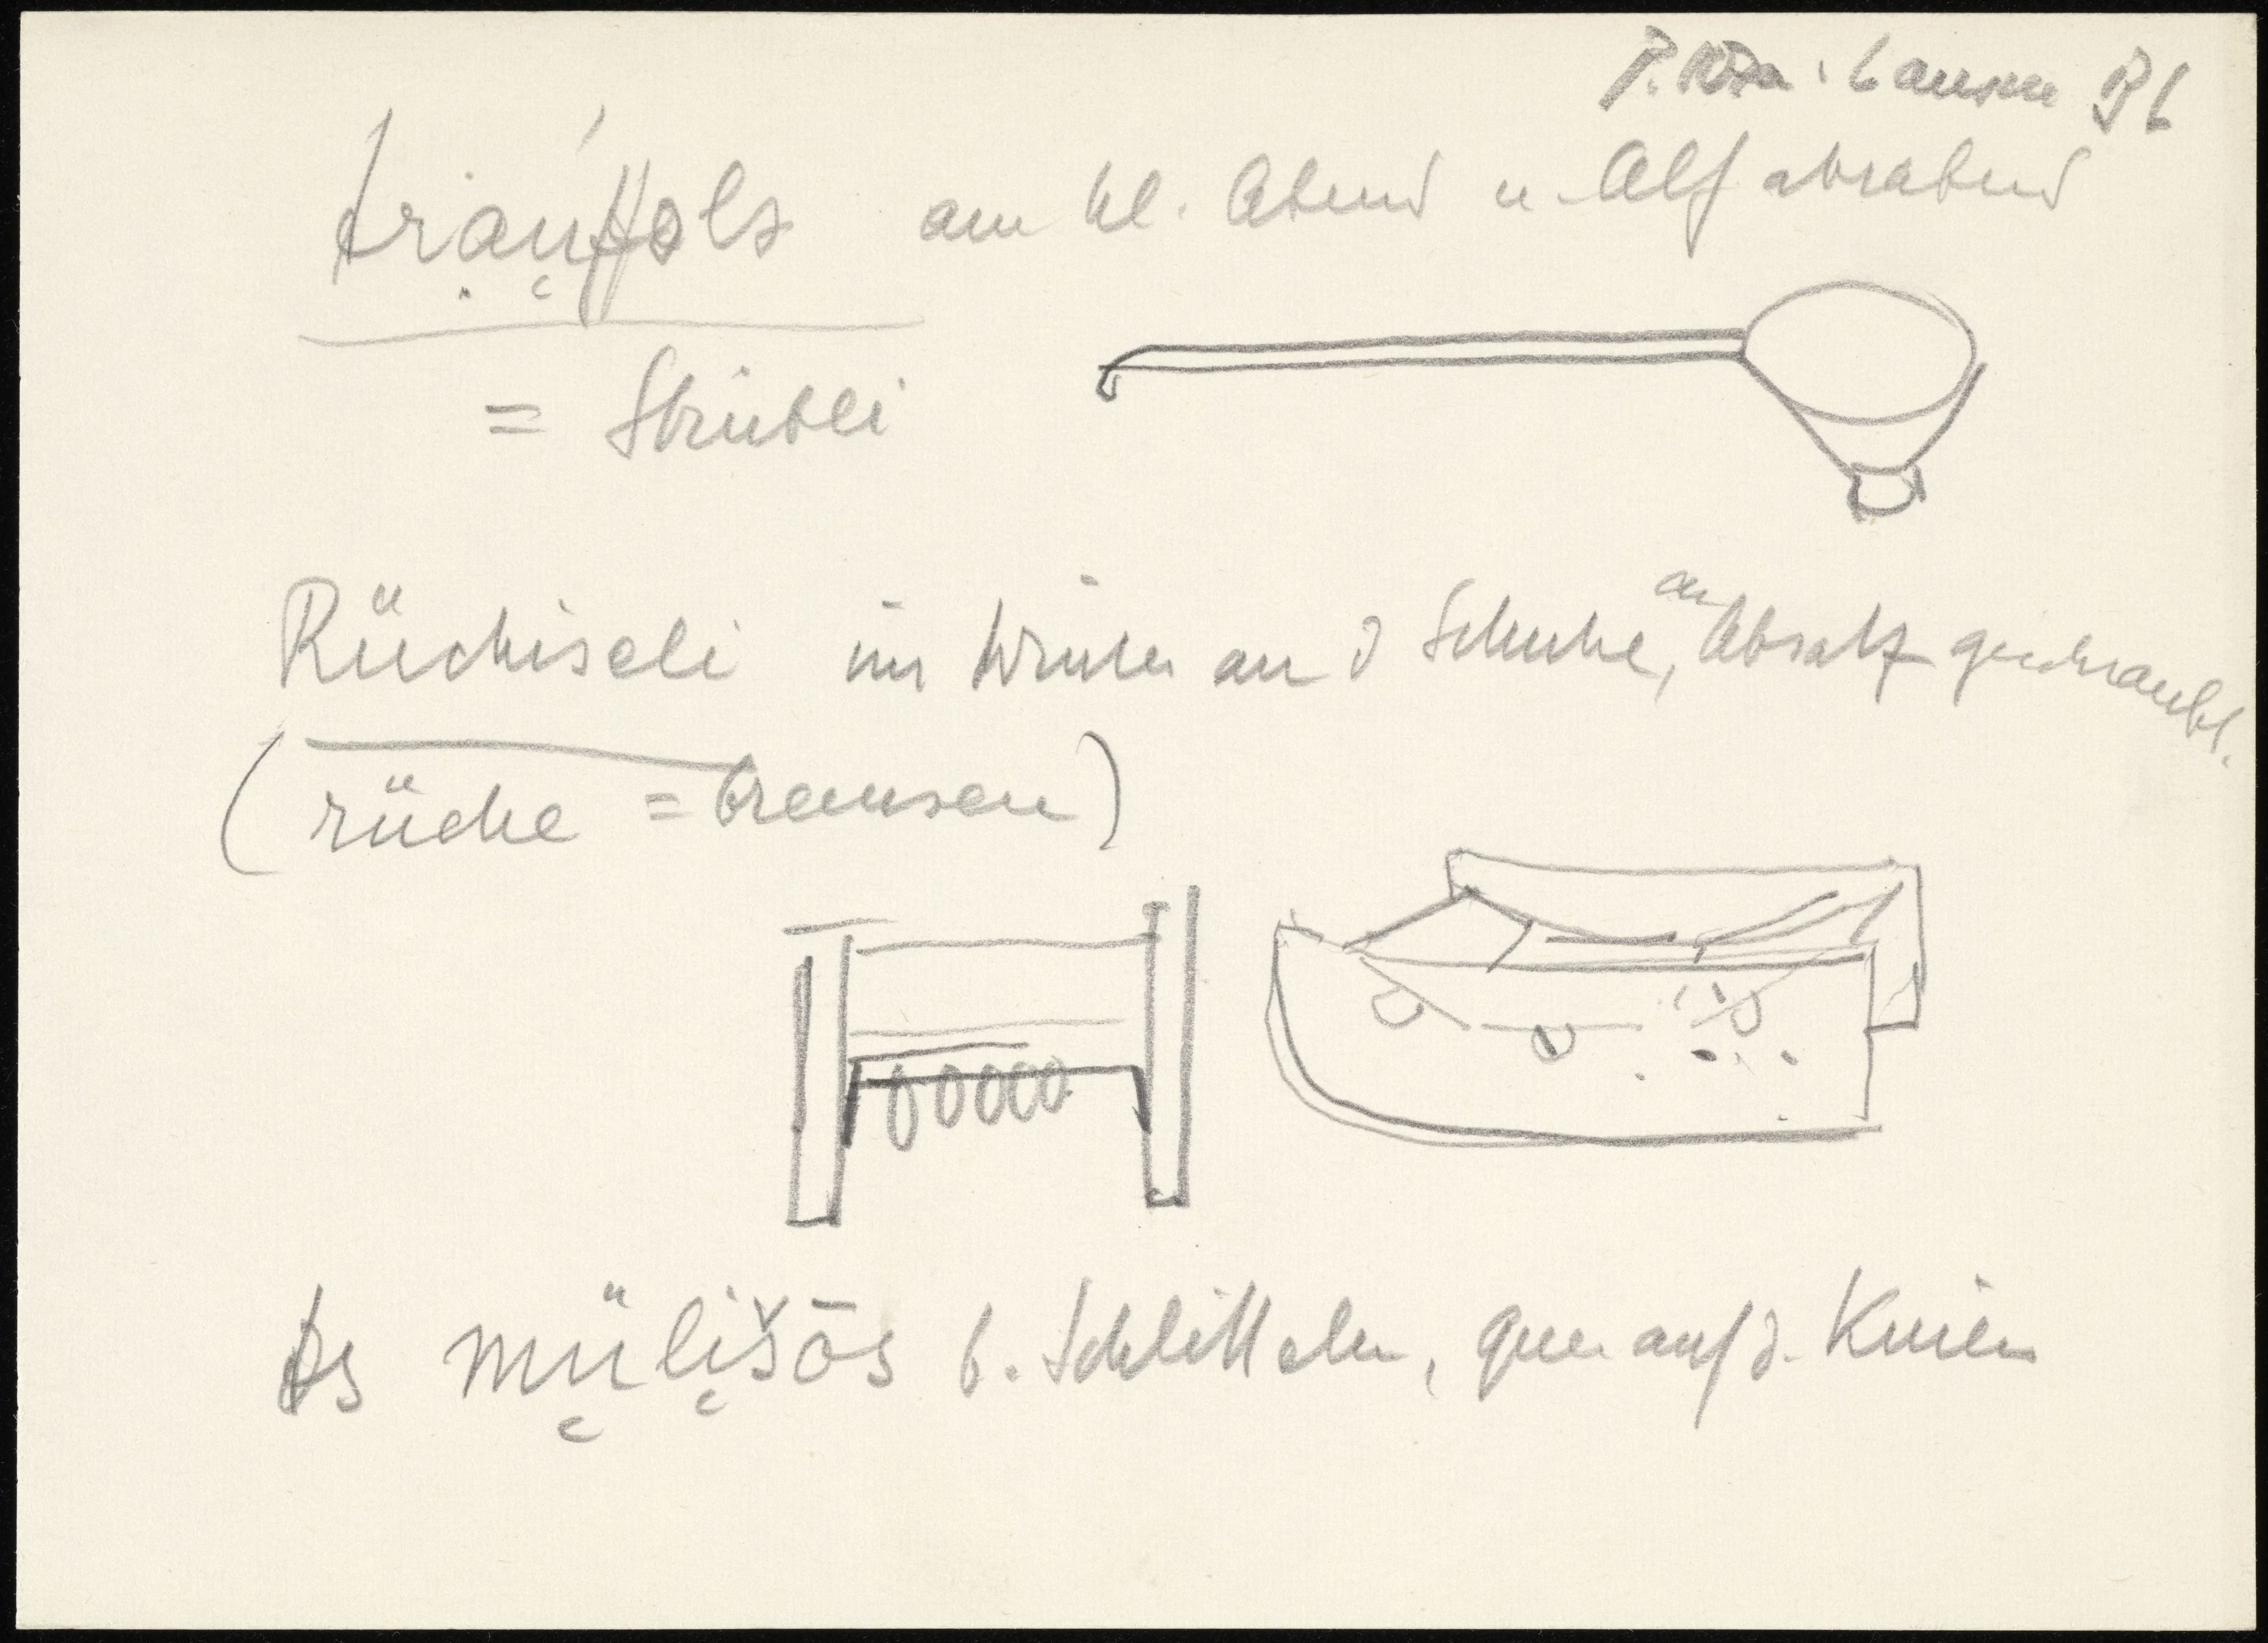 Lausen BL
am hl. Abend u. Alfabrabend
= Strübli
Rüchiseli im Winter an d Schuhe, am Absatz geschraubt.
(rüche = bremsen)
s mülišōs b. Schlitteln, quer auf d. Knien